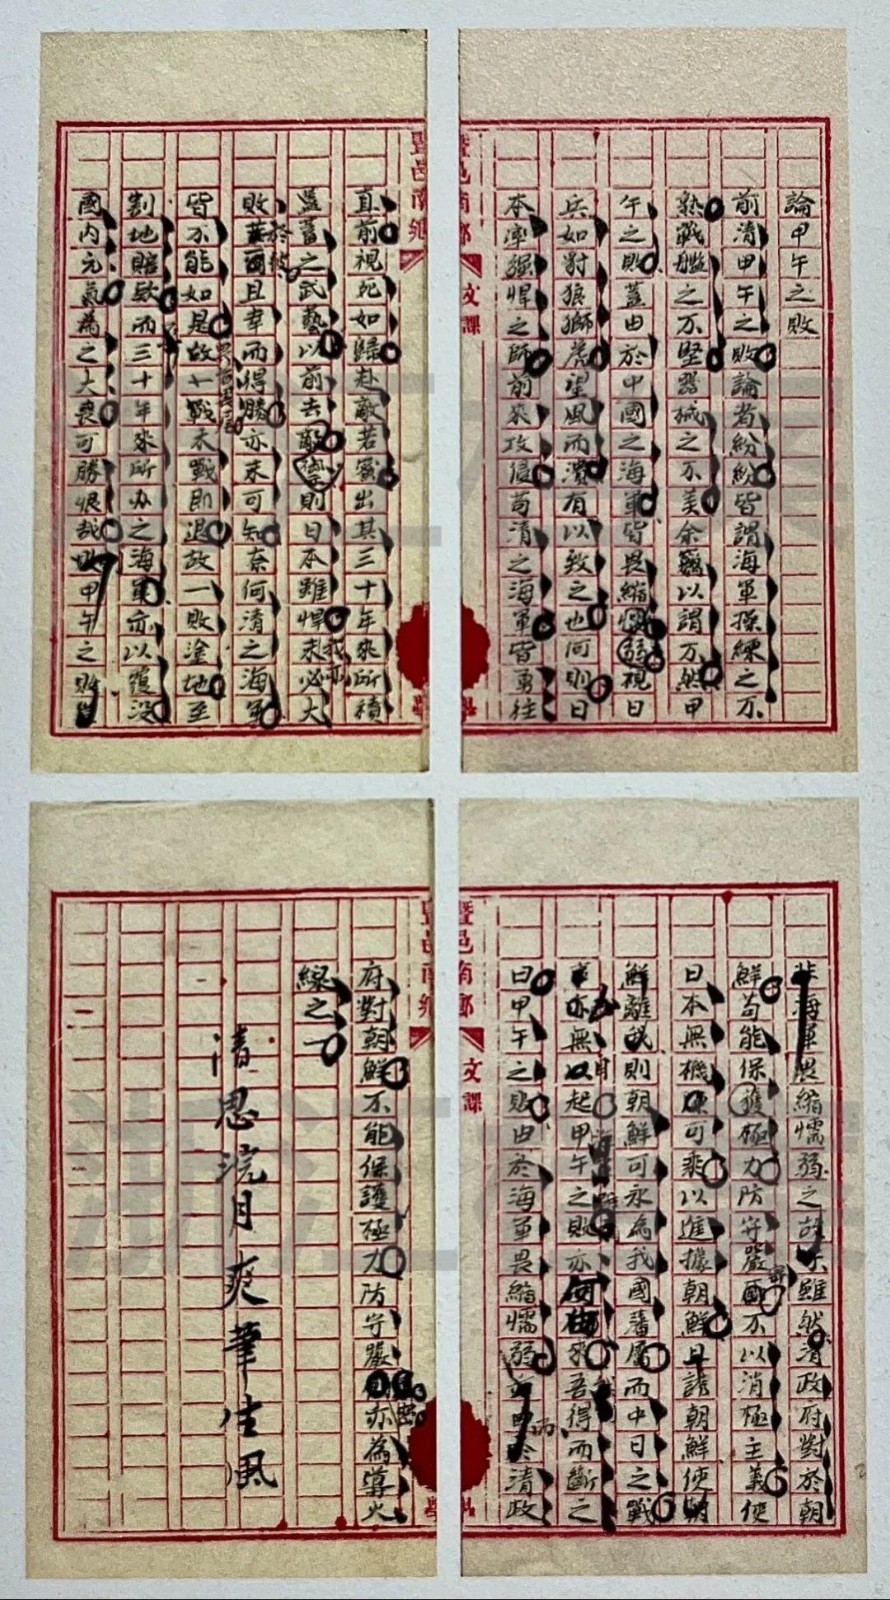 論甲午之敗
前清甲午之敗論者紛紛皆謂海軍操練之不
熟戰艦之不堅器械之不美余竊以謂不然甲
午之敗蓋由於中國之海軍皆畏縮懦弱視日
兵如對狼獅虎望風而潰有以致之也何則日
本率強悍之師前來攻侵苟清之海軍皆勇往
直前視死如歸赴敵若 出其三十年來所積
蓄之武藝以前去敵 則日本雖悍未必大
我亦
敗 且幸而得勝亦未可知奈何清之海軍
於彼
皆不能如是故一戰未戰即退故一敗塗地至
割地賠款而三十年來所办之海軍亦以覆沒
國內元氣為之大喪可勝恨哉 甲午之敗
非海軍畏縮懦弱之故 雖然清政府對於朝
鮮苟能保護極力防守嚴 不以消極主義使
日本無機 可乘以進據朝鮮且誘朝鮮使朝
鮮離我則朝鮮可永為我國藩屬而中日之戰
亦無以起甲午之敗亦何由來吾得而斷之
曰甲午之敗由於海軍畏縮懦弱 於清政
而
府對朝鮮不能保護極力防守嚴 亦為導火
密
線之一
清思浣月爽筆生風
暨邑南鄉
文課
暨邑南鄉
文課